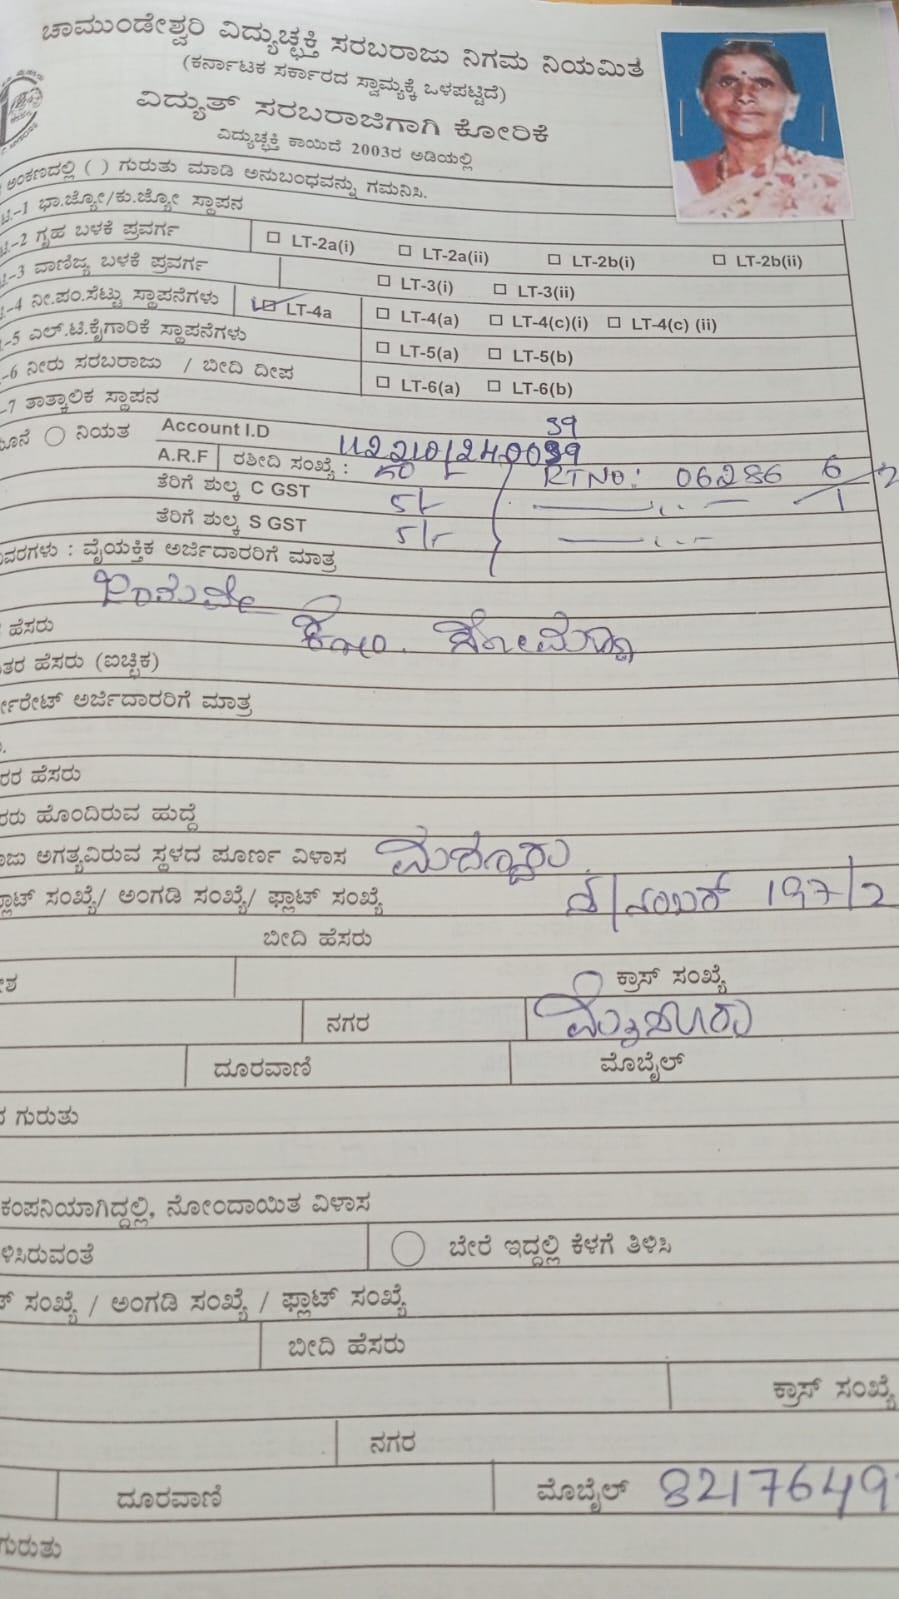 ಚಾಮುಂಡೇಶ್ವರಿ ವಿದ್ಯುಚ್ಛಕ್ತಿ ಸರಬರಾಜು ನಿಗಮ ನಿಯಮಿತ
(ಕರ್ನಾಟಕ ಸರ್ಕಾರದ ಸ್ವಾಮ್ಯಕ್ಕೆ ಒಳಪಟ್ಟಿದೆ)
ವಿದ್ಯುತ್ ಸರಬರಾಜಿಗಾಗಿ ಕೋರಿಕೆ
ವಿದ್ಯುಚ್ಛಕ್ತಿ ಕಾಯಿದೆ 2003ರ ಅಡಿಯಲ್ಲಿ
ಅಂಕಣದಲ್ಲಿ ( ) ಗುರುತು ಮಾಡಿ ಅನುಬಂಧವನ್ನು ಗಮನಿಸಿ.
-1 ಭಾ.ಜ್ಯೋ/ಕು.ಜ್ಯೋ ಸ್ಥಾಪನ
-2 ಗೃಹ ಬಳಕೆ ಪ್ರವರ್ಗ LT-2a(i) LT-2a(ii) LT-2b(i) LT-2b(ii)
-3 ವಾಣಿಜ್ಯ ಬಳಕೆ ಪ್ರವರ್ಗ LT-3(i) LT-3(ii)
-4 ನೀ.ಪಂ.ಸೆಟ್ಟು ಸ್ಥಾಪನೆಗಳು LT-4a LT-4(a) LT-4(c)(i) LT-4(c) (ii)
-5 ಎಲ್.ಟಿ.ಕೈಗಾರಿಕೆ ಸ್ಥಾಪನೆಗಳು LT-5(a) LT-5(b)
-6 ನೀರು ಸರಬರಾಜು / ಬೀದಿ ದೀಪ LT-6(a) LT-6(b)
-7 ತಾತ್ಕಾಲಿಕ ಸ್ಥಾಪನ
ನಿಯತ Account I.D 39
A.R.F ರಶೀದಿ ಸಂಖ್ಯೆ : 50 RTNO: 06286
ತೆರಿಗೆ ಶುಲ್ಕ C GST 5/-
ತೆರಿಗೆ ಶುಲ್ಕ S GST 5/-
ವರಗಳು : ವೈಯಕ್ತಿಕ ಅರ್ಜಿದಾರರಿಗೆ ಮಾತ್ರ
ಹೆಸರು ಕೋಂ.
ತರ ಹೆಸರು (ಐಚ್ಛಿಕ)
ರೇಟ್ ಅರ್ಜಿದಾರರಿಗೆ ಮಾತ್ರ
ರರ ಹೆಸರು
ರರು ಹೊಂದಿರುವ ಹುದ್ದೆ
ಅಗತ್ಯವಿರುವ ಸ್ಥಳದ ಪೂರ್ಣ ವಿಳಾಸ
ಸಂಖ್ಯೆ/ ಅಂಗಡಿ ಸಂಖ್ಯೆ/ ಫ್ಲಾಟ್ ಸಂಖ್ಯೆ ನಂಬರ್ 197/2
ಬೀದಿ ಹೆಸರು
ಕ್ರಾಸ್ ಸಂಖ್ಯೆ
ನಗರ ಮೈಸೂರು
ದೂರವಾಣಿ ಮೊಬೈಲ್
ಗುರುತು
ಕಂಪನಿಯಾಗಿದ್ದಲ್ಲಿ, ನೋಂದಾಯಿತ ವಿಳಾಸ
ಳಿಸಿರುವಂತೆ ಬೇರೆ ಇದ್ದಲ್ಲಿ ಕೆಳಗೆ ತಿಳಿಸಿ
ಸಂಖ್ಯೆ / ಅಂಗಡಿ ಸಂಖ್ಯೆ / ಫ್ಲಾಟ್ ಸಂಖ್ಯೆ
ಬೀದಿ ಹೆಸರು
ಕ್ರಾಸ್ ಸಂಖ್ಯೆ
ನಗರ
ದೂರವಾಣಿ ಮೊಬೈಲ್ 82176491
ಗುರುತು